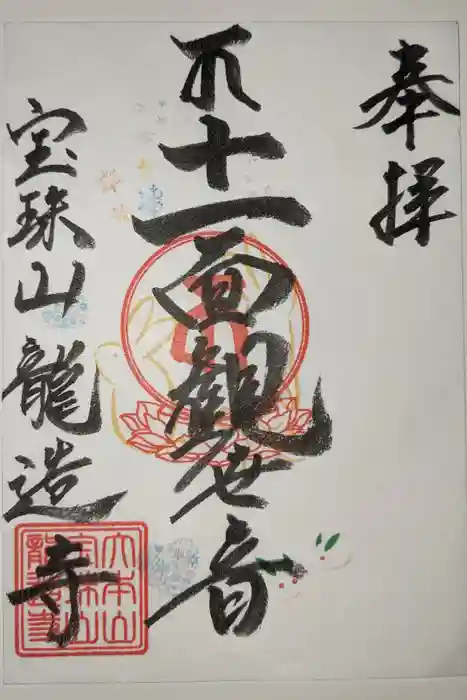 奉拝
十一面観世音
宝珠山龍造寺
大本山
宝珠山
龍造寺